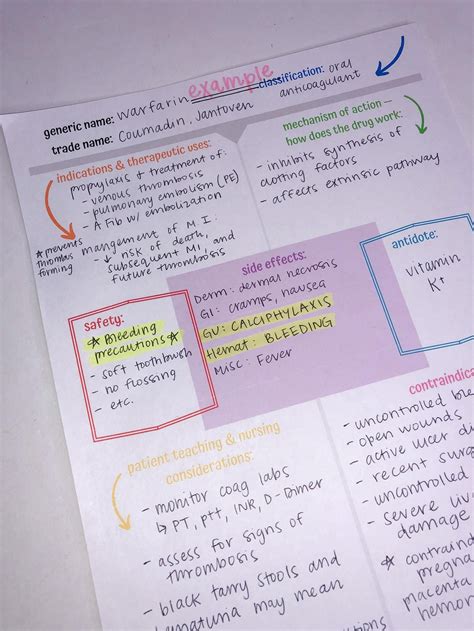 example
generic name: warfarin
classification: oral
anticoagulant
trade name: Coumadin, Jantoven
indications & therapeutic uses:
propylaxis & treatment of:
- venous thrombosis
- pulmonary embolism (PE)
- A Fib w/ embolization
* prevents
thrombus
forming
mangement of M.I.
- ↓ risk of death,
subsequent MI, and
future thrombosis
mechanism of action —
how does the drug work:
- inhibits synthesis of
clotting factors
- affects extrinsic pathway
safety:
* Bleeding
precautions *
- soft toothbrush
- no flossing
- etc.
side effects:
Derm: dermal necrosis
GI: cramps, nausea
GU: CALCIPHYLAXIS
Hemat: BLEEDING
Misc: Fever
antidote:
vitamin
K+
patient teaching & nursing
considerations:
- monitor coag labs
↳ PT, PTT, INR, D-Dimer
- assess for signs of
thrombosis
- black tarry stools and
hematuria may mean
contraindica
- uncontrolled ble
- open wounds
- active ulcer di
- recent surg
- uncontrolled
- severe liv
damage
* contraind
pregna
placenta
hemor